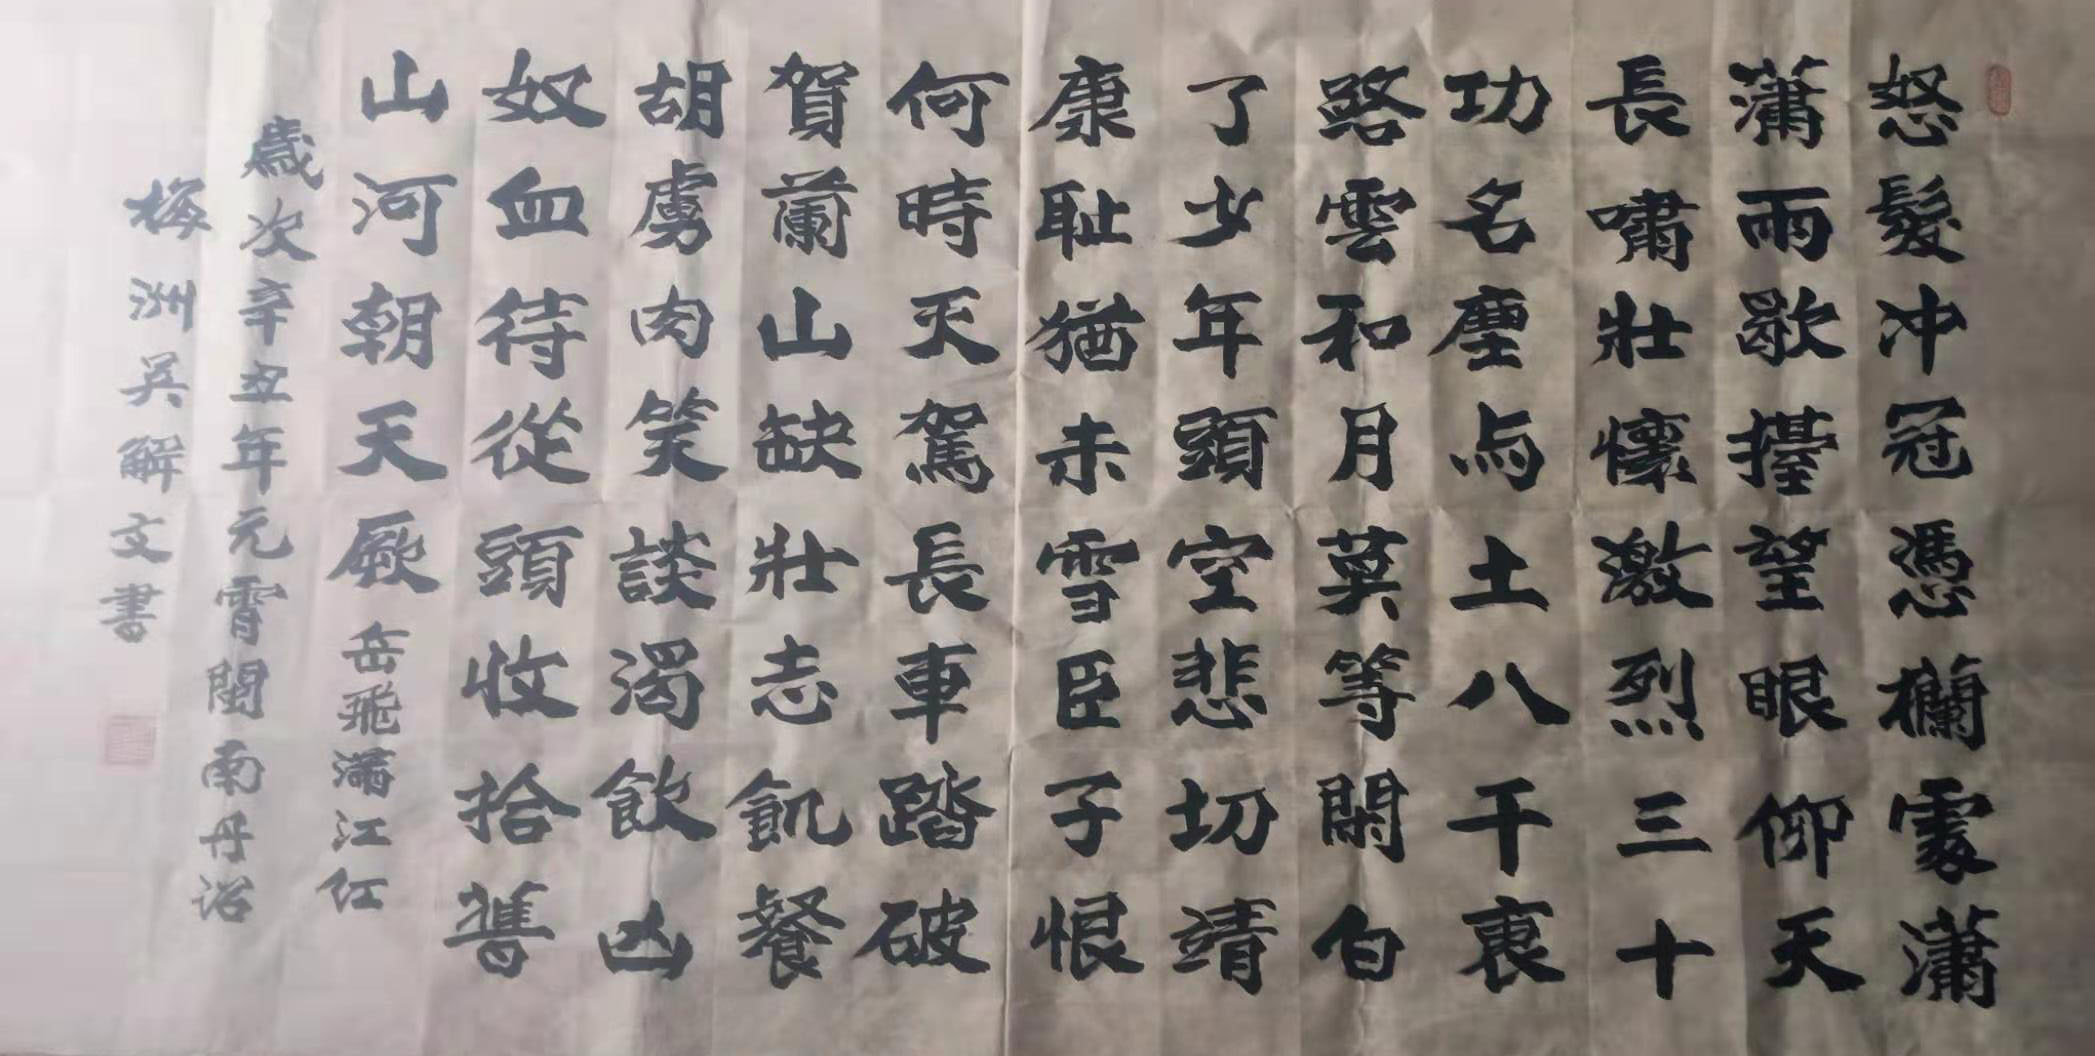 怒髮冲冠憑欄處瀟
瀟雨歇擡望眼仰天
長嘯壯懷激烈三十
功名塵与土八千裏
路雲和月莫等閑白
了少年頭空悲切靖
康耻猶未雪臣子恨
何時灭駕長車踏破
賀蘭山缺壯志飢餐
胡虜肉笑談渴飲凶
奴血待從頭收拾舊
山河朝天厥 岳飛滿江红
歲次辛丑年元宵閩南丹诏
梅洲吴解文書